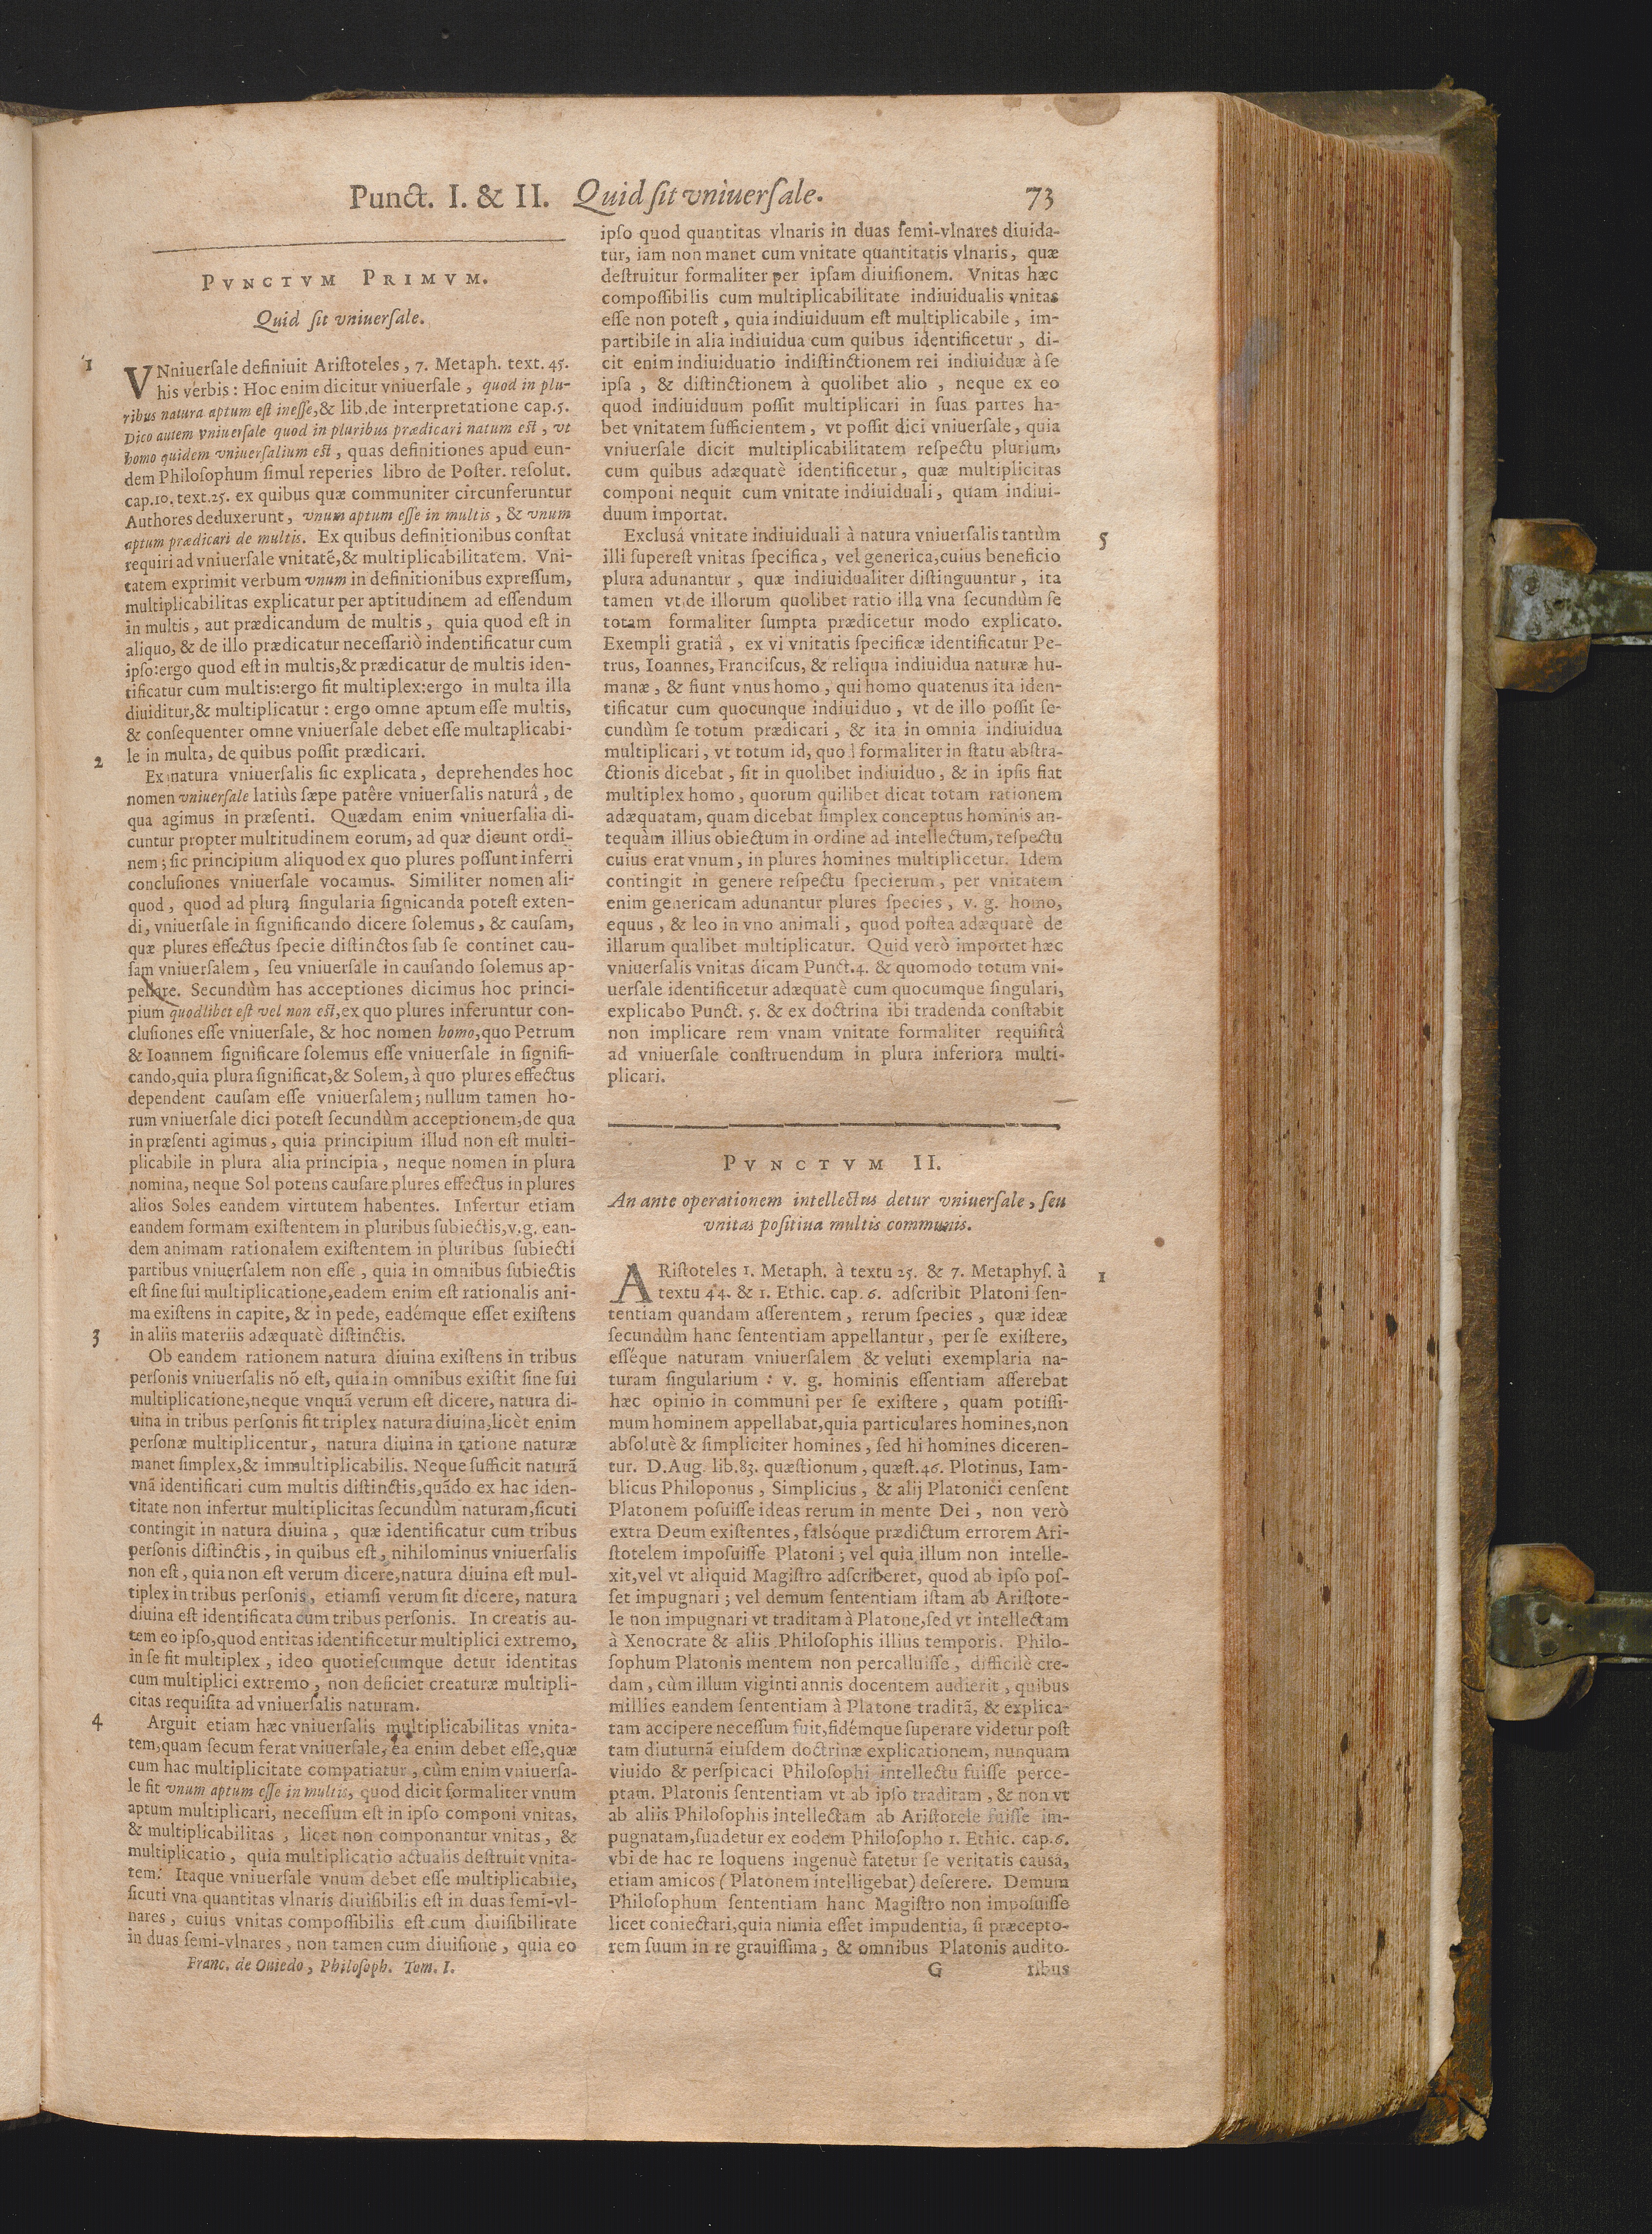 Punct. I. & II. Quid ſit vniuerſale. 73
PVNCTVM PRIMVM.
Quid ſit vniuerſale.
1
VNniuerſale definiuit Ariſtoteles, 7. Metaph. text. 45.
his verbis: Hoc enim dicitur vniuerſale, quod in plu-
ribus natura aptum eſt ineſſe, & lib. de interpretatione cap. 5.
Dico autem vniuerſale quod in pluribus prædicari natum eſt, vt
homo quidem vniuerſalium eſt, quas definitiones apud eun-
dem Philoſophum ſimul reperies libro de Poſter. reſolut.
cap. 10. text. 25. ex quibus quæ communiter circunferuntur
Authores deduxerunt, vnum aptum eſſe in multis, & vnum
aptum prædicari de multis. Ex quibus definitionibus conſtat
requiri ad vniuerſale vnitatẽ, & multiplicabilitatem. Vni-
tatem exprimit verbum vnum in definitionibus expreſſum,
multiplicabilitas explicatur per aptitudinem ad eſſendum
in multis, aut prædicandum de multis, quia quod eſt in
aliquo, & de illo prædicatur neceſſariò indentificatur cum
ipſo: ergo quod eſt in multis, & prædicatur de multis iden-
tificatur cum multis: ergo fit multiplex: ergo in multa illa
diuiditur, & multiplicatur: ergo omne aptum eſſe multis,
& conſequenter omne vniuerſale debet eſſe multaplicabi-
le in multa, de quibus poſſit prædicari.
2
Ex natura vniuerſalis ſic explicata, deprehendes hoc
nomen vniuerſale latiùs ſæpe patêre vniuerſalis naturâ, de
qua agimus in præſenti. Quædam enim vniuerſalia di-
cuntur propter multitudinem eorum, ad quæ dicunt ordi-
nem; ſic principium aliquod ex quo plures poſſunt inferri
concluſiones vniuerſale vocamus. Similiter nomen ali-
quod, quod ad plura ſingularia ſignicanda poteſt exten-
di, vniuerſale in ſignificando dicere ſolemus, & cauſam,
quæ plures effectus ſpecie diſtinctos ſub ſe continet cau-
ſam vniuerſalem, ſeu vniuerſale in cauſando ſolemus ap-
pellare. Secundùm has acceptiones dicimus hoc princi-
pium quodlibet eſt vel non eſt, ex quo plures inferuntur con-
cluſiones eſſe vniuerſale, & hoc nomen homo, quo Petrum
& Ioannem ſignificare ſolemus eſſe vniuerſale in ſignifi-
cando, quia plura ſignificat, & Solem, à quo plures effectus
dependent cauſam eſſe vniuerſalem; nullum tamen ho-
rum vniuerſale dici poteſt ſecundùm acceptionem, de qua
in præſenti agimus, quia principium illud non eſt multi-
plicabile in plura alia principia, neque nomen in plura
nomina, neque Sol potens cauſare plures effectus in plures
alios Soles eandem virtutem habentes. Infertur etiam
eandem formam exiſtentem in pluribus ſubiectis, v. g. ean-
dem animam rationalem exiſtentem in pluribus ſubiecti
partibus vniuerſalem non eſſe, quia in omnibus ſubiectis
eſt ſine ſui multiplicatione, eadem enim eſt rationalis ani-
ma exiſtens in capite, & in pede, eadémque eſſet exiſtens
in aliis materiis adæquatè diſtinctis.
3
Ob eandem rationem natura diuina exiſtens in tribus
perſonis vniuerſalis nõ eſt, quia in omnibus exiſtit ſine ſui
multiplicatione, neque vnquã verum eſt dicere, natura di-
uina in tribus perſonis fit triplex natura diuina, licèt enim
perſonæ multiplicentur, natura diuina in ratione naturæ
manet ſimplex, & immultiplicabilis. Neque ſufficit naturã
vnã identificari cum multis diſtinctis, quãdo ex hac iden-
titate non infertur multiplicitas ſecundùm naturam, ſicuti
contingit in natura diuina, quæ identificatur cum tribus
perſonis diſtinctis, in quibus eſt, nihilominus vniuerſalis
non eſt, quia non eſt verum dicere, natura diuina eſt mul-
tiplex in tribus perſonis, etiamſi verum ſit dicere, natura
diuina eſt identificata cum tribus perſonis. In creatis au-
tem eo ipſo, quod entitas identificetur multiplici extremo,
in ſe fit multiplex, ideo quotieſcumque detur identitas
cum multiplici extremo, non deficiet creaturæ multipli-
citas requiſita ad vniuerſalis naturam.
4
Arguit etiam hæc vniuerſalis multiplicabilitas vnita-
tem, quam ſecum ferat vniuerſale, ea enim debet eſſe, quæ
cum hac multiplicitate compatiatur, cùm enim vniuerſa-
le ſit vnum aptum eſſe in multis, quod dicit formaliter vnum
aptum multiplicari, neceſſum eſt in ipſo componi vnitas,
& multiplicabilitas, licet non componantur vnitas, &
multiplicatio, quia multiplicatio actualis deſtruit vnita-
tem. Itaque vniuerſale vnum debet eſſe multiplicabile,
ſicuti vna quantitas vlnaris diuiſibilis eſt in duas ſemi-vl-
nares, cuius vnitas compoſſibilis eſt cum diuiſibilitate
in duas ſemi-vlnares, non tamen cum diuiſione, quia eo
Franc. de Ouiedo, Philoſoph. Tom. I.
ipſo quod quantitas vlnaris in duas ſemi-vlnares diuida-
tur, iam non manet cum vnitate quantitatis vlnaris, quæ
deſtruitur formaliter per ipſam diuiſionem. Vnitas hæc
compoſſibilis cum multiplicabilitate indiuidualis vnitas
eſſe non poteſt, quia indiuiduum eſt multiplicabile, im-
partibile in alia indiuidua cum quibus identificetur, di-
cit enim indiuiduatio indiſtinctionem rei indiuiduæ à ſe
ipſa, & diſtinctionem à quolibet alio, neque ex eo
quod indiuiduum poſſit multiplicari in ſuas partes ha-
bet vnitatem ſufficientem, vt poſſit dici vniuerſale, quia
vniuerſale dicit multiplicabilitatem reſpectu plurium,
cum quibus adæquatè identificetur, quæ multiplicitas
componi nequit cum vnitate indiuiduali, quam indiui-
duum importat.
5
Excluſâ vnitate indiuiduali à natura vniuerſalis tantùm
illi ſupereſt vnitas ſpecifica, vel generica, cuius beneficio
plura adunantur, quæ indiuidualiter diſtinguuntur, ita
tamen vt de illorum quolibet ratio illa vna ſecundùm ſe
totam formaliter ſumpta prædicetur modo explicato.
Exempli gratiâ, ex vi vnitatis ſpecificæ identificatur Pe-
trus, Ioannes, Franciſcus, & reliqua indiuidua naturæ hu-
manæ, & fiunt vnus homo, qui homo quatenus ita iden-
tificatur cum quocunque indiuiduo, vt de illo poſſit ſe-
cundùm ſe totum prædicari, & ita in omnia indiuidua
multiplicari, vt totum id, quod formaliter in ſtatu abſtra-
ctionis dicebat, ſit in quolibet indiuiduo, & in ipſis fiat
multiplex homo, quorum quilibet dicat totam rationem
adæquatam, quam dicebat ſimplex conceptus hominis an-
tequàm illius obiectum in ordine ad intellectum, reſpectu
cuius erat vnum, in plures homines multiplicetur. Idem
contingit in genere reſpectu ſpecierum, per vnitatem
enim genericam adunantur plures ſpecies, v. g. homo,
equus, & leo in vno animali, quod poſtea adæquatè de
illarum qualibet multiplicatur. Quid verò importet hæc
vniuerſalis vnitas dicam Punct. 4. & quomodo totum vni-
uerſale identificetur adæquatè cum quocumque ſingulari,
explicabo Punct. 5. & ex doctrina ibi tradenda conſtabit
non implicare rem vnam vnitate formaliter requiſitâ
ad vniuerſale conſtruendum in plura inferiora multi-
plicari.
PVNCTVM II.
An ante operationem intellectus detur vniuerſale, ſeu
vnitas poſitiua multis communis.
1
ARiſtoteles 1. Metaph. à textu 25. & 7. Metaphyſ. à
textu 44. & 1. Ethic. cap. 6. adſcribit Platoni ſen-
tentiam quandam aſſerentem, rerum ſpecies, quæ ideæ
ſecundùm hanc ſententiam appellantur, per ſe exiſtere,
eſſéque naturam vniuerſalem & veluti exemplaria na-
turam ſingularium: v. g. hominis eſſentiam aſſerebat
hæc opinio in communi per ſe exiſtere, quam potiſſi-
mum hominem appellabat, quia particulares homines, non
abſolutè & ſimpliciter homines, ſed hi homines diceren-
tur. D. Aug. lib. 83. quæſtionum, quæſt. 46. Plotinus, Iam-
blicus Philoponus, Simplicius, & alij Platonici cenſent
Platonem poſuiſſe ideas rerum in mente Dei, non verò
extra Deum exiſtentes, falsóque prædictum errorem Ari-
ſtotelem impoſuiſſe Platoni; vel quia illum non intelle-
xit, vel vt aliquid Magiſtro adſcriberet, quod ab ipſo poſ-
ſet impugnari; vel demum ſententiam iſtam ab Ariſtote-
le non impugnari vt traditam à Platone, ſed vt intellectam
à Xenocrate & aliis Philoſophis illius temporis. Philo-
ſophum Platonis mentem non percalluiſſe, difficilè cre-
dam, cùm illum viginti annis docentem audierit, quibus
millies eandem ſententiam à Platone traditã, & explica-
tam accipere neceſſum fuit, fidémque ſuperare videtur poſt
tam diuturnã eiuſdem doctrinæ explicationem, nunquam
viuido & perſpicaci Philoſophi intellectu fuiſſe perce-
ptam. Platonis ſententiam vt ab ipſo traditam, & non vt
ab aliis Philoſophis intellectam ab Ariſtotele fuiſſe im-
pugnatam, ſuadetur ex eodem Philoſopho 1. Ethic. cap. 6.
vbi de hac re loquens ingenuè fatetur ſe veritatis causâ,
etiam amicos (Platonem intelligebat) deſerere. Demum
Philoſophum ſententiam hanc Magiſtro non impoſuiſſe
licet coniectari, quia nimia eſſet impudentia, ſi præcepto-
rem ſuum in re grauiſſima, & omnibus Platonis audito-
G ribus